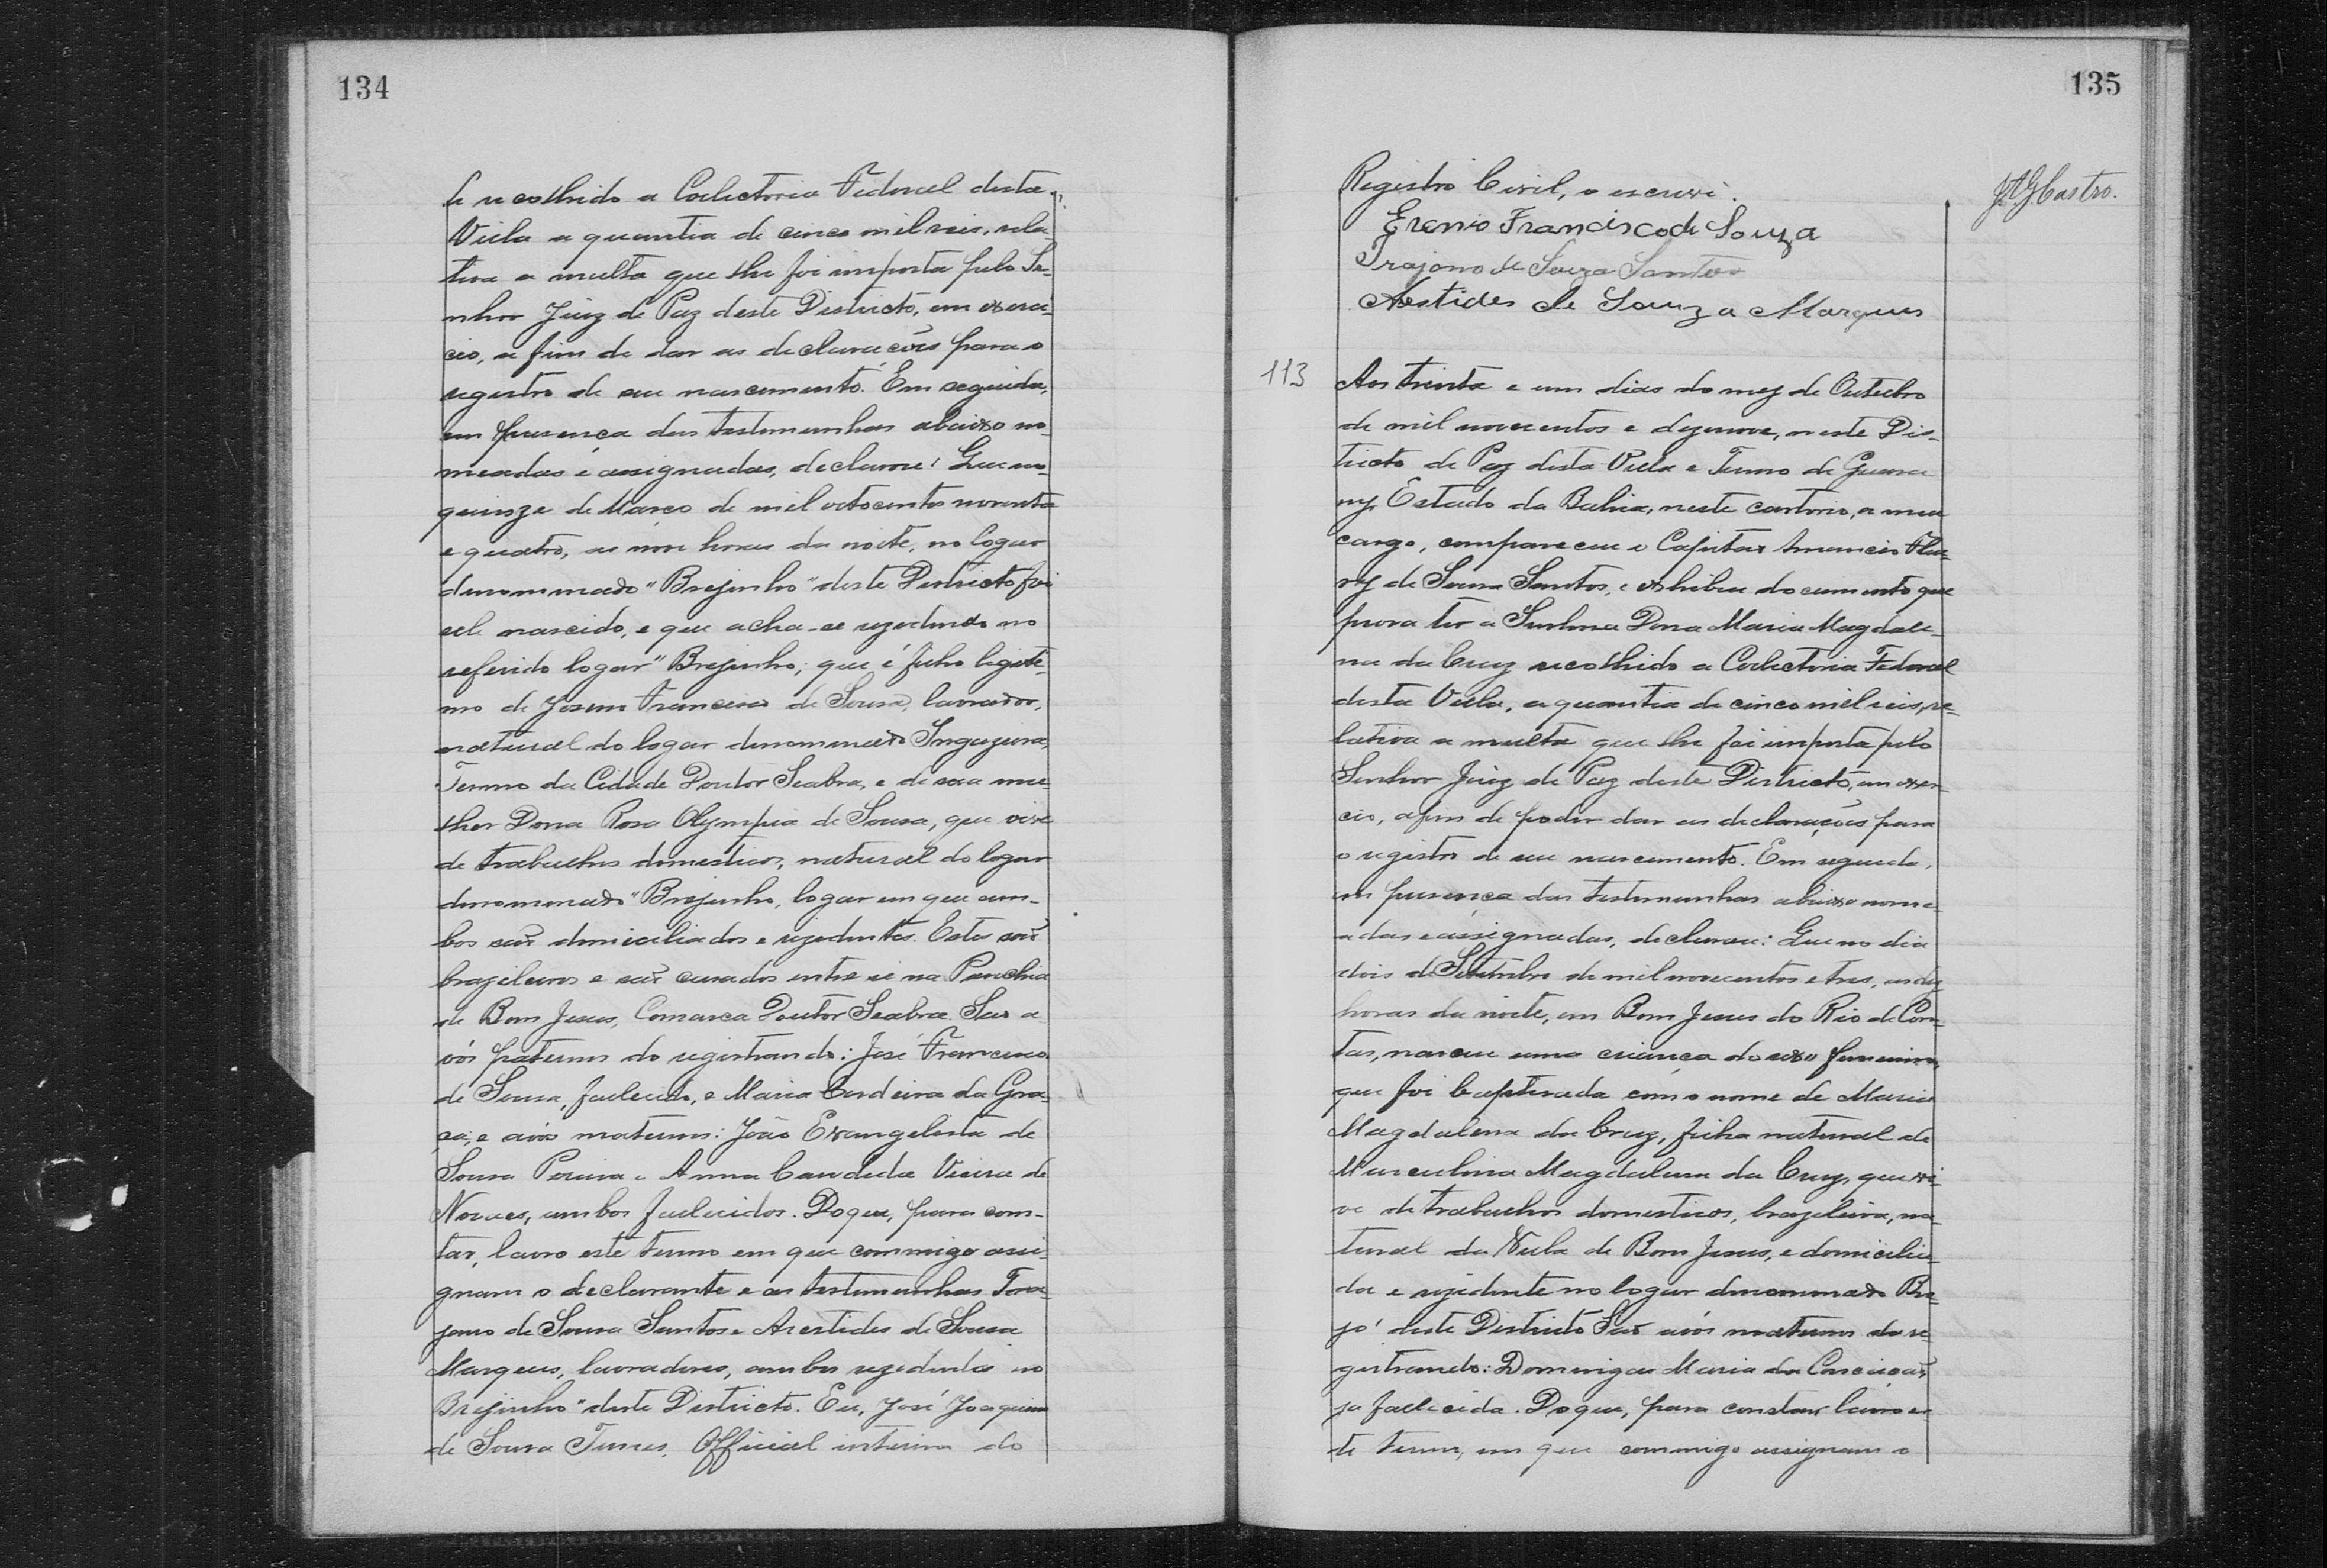 134
le recolhido a Collectoria Federal desta
Villa a quantia de cinco mil reis, rela
tiva a multa que lhe foi imposta pelo Se-
nhor Juiz de Paz deste Districto, em exerci-
cio, a fim de dar as declarações para o
registro de seu nascimento. Em seguida,
em presença das testemunhas abaixo no-
meadas e assignadas, declarou: Que no
quinze de Março de mil oitocentos noventa
e quatro, as nove horas da noite, no logar
denominado "Brejinho" deste Districto foi
elle nascido, e que acha-se rezedindo no
referido logar "Brejinho; que é filho legite-
mo de Francisco de Sousa, lavrador,
natural do logar denominado Ingazeira,
Termo da Cidade Doutor Seabra, e de sua mu-
lher Dona Rosa Olympia de Sousa, que vive
de trabalhos domesticos, natural do logar
denominado "Brejinho, logar em que am-
bos são domiciliados e rezedentes. Estes são
brazileiros e são casados entre si na Parochia
de Bom Jesus, Comarca Doutor Seabra. São a-
vós paternos do registrando: José Francisco
de Sousa, fallecido, e Maria Cordeira da Gra-
ça, e avós maternos: João Evangelista de
Sousa Pereira e Anna Candida Vieira de
Novaes, ambos fallecidos. Do que, para cons-
tar, lavro este termo em que commigo assi-
gnam o declarante e as testemunhas Tra-
jano de Sousa Santos e Arestides de Sousa
Marques, lavradores, ambos rezedentes no
Brejinho" deste Districto. Eu, José Joaquim
de Sousa Official interino do
135
Registro Civil, o escrevi.
J. A. G. Castro.
Erenio Francisco de Souza
Trajano de Souza Santos
Arestides de Souza Marques
113
Aos trinta e um dias do mez de Outubro
de mil novecentos e dezenove, neste Dis-
tricto de Paz desta Villa e Termo de Guara
ny, Estado da Bahia, neste cartorio, a meu
cargo, compareceu o Capitão Amancio Flu
ry de Sousa Santos, e exhibiu documento que
prova ter a Senhora Dona Maria Magdale-
na da Cruz recolhido a Collectoria Federal
desta Villa, a quantia de cinco mil reis, re-
lativa a multa que lhe foi imposta pelo
Senhor Juiz de Paz deste Districto, em exer-
cio, afim de poder dar as declarações para
o registro de seu nascimento. Em seguida,
em presença das testemunhas abaixo nome-
adas e assignadas, declarou: Que no dia
dois de Setembro de mil novecentos e tres, as dez
horas da noite, em Bom Jesus do Rio de Con-
tas, nasceu uma criança do sexo feminino,
que foi baptisada com o nome de Maria
Magdalena da Cruz, filha natural de
Marculina Magdalena da Cruz, que vi-
ve de trabalhos domesticos, brazileira, na-
tural da Villa de Bom Jesus, e domicilia-
da e rezidente no logar denominado Bre-
jo' deste Districto São avós maternos da re-
gistrando: Domingas Maria da Conceição,
já fallecida. Do que, para constar lavro es-
te termo, em que commigo assignam o